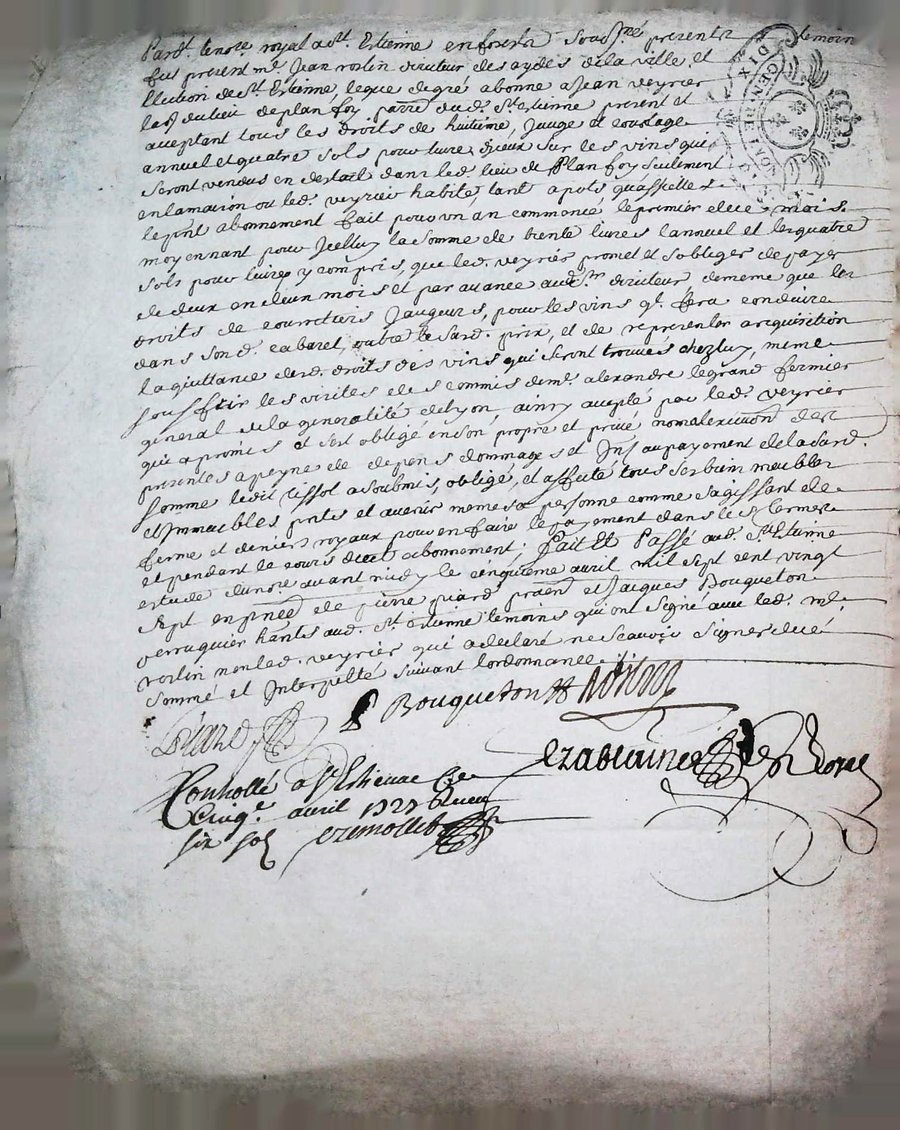 Pard.t le no.re royal a S.t Etienne en forest sousigné present temoin
fut present m.e Jean roslin directeur des aydes de la ville et
Election de S.t Estienne, lequel de gré abonne a Jean veyrier
du lieu de plan foy parr.e dud. S.t etienne present et
acceptant tous les droits de huitieme, Jauge et courtage
annuel et quatre sols pour livre d'jceux sur les vins qui
seront vendus en destail dans led. lieu de Plan foy seulement
en la maison ou led. veyrier habite, tant a pots qu'assiettes
le pnt abonnement fait pour un an commencé le premier de ce mois
moyennant pour Jcelluy la somme de trente livres l'annuel et les quatre
sols pour livres y compris, que led. veyrier promet et s'obliger de payer
de deux en deux mois et par avance aud. s.r directeur de meme que les
droits de courretiers Jaugeurs, pour les vins q.l fera conduire
dans son d. cabaret, outre le susd. prix, et de representer a requisition
la quittance desd. droits des vins qui seront trouvés chez luy, meme
souffrir les visites des commis de m.e alexandre legrand fermier
general de la generalité de lyon, ainsy accepté par led. veyrier
qui a promis et s'est obligé en son propre et privé nom a l'execution des
presentes a peyne de depens dommages et Jnt au payement de la susd.
somme ledit a soubmis, obligé, et affecté tous ses biens meubles
et Jmmeubles pnts et avenir meme sa personne comme s'agissant de
ferme et deniers royaux pour en faire le payement dans les termes
et pendant le cours dud. abonnement; Fait et Passé aud. S.t Etienne
estude du no.re avant midy le cinquieme avril mil sept cent vingt
sept en pnce de pierre piard praen et Jacques Bouqueton
perruquier hants aud. S.t etienne temoins qui ont signé avec led. m.e
roslin non led. veyrier qui a declaré ne scavoir signer de ce
sommé et Interpellé suivant l'ordonnance
Piard Bouqueton Roslin
Conrollé a S.t Etienne le
Cinq.e avril 1727 Receu
six sols